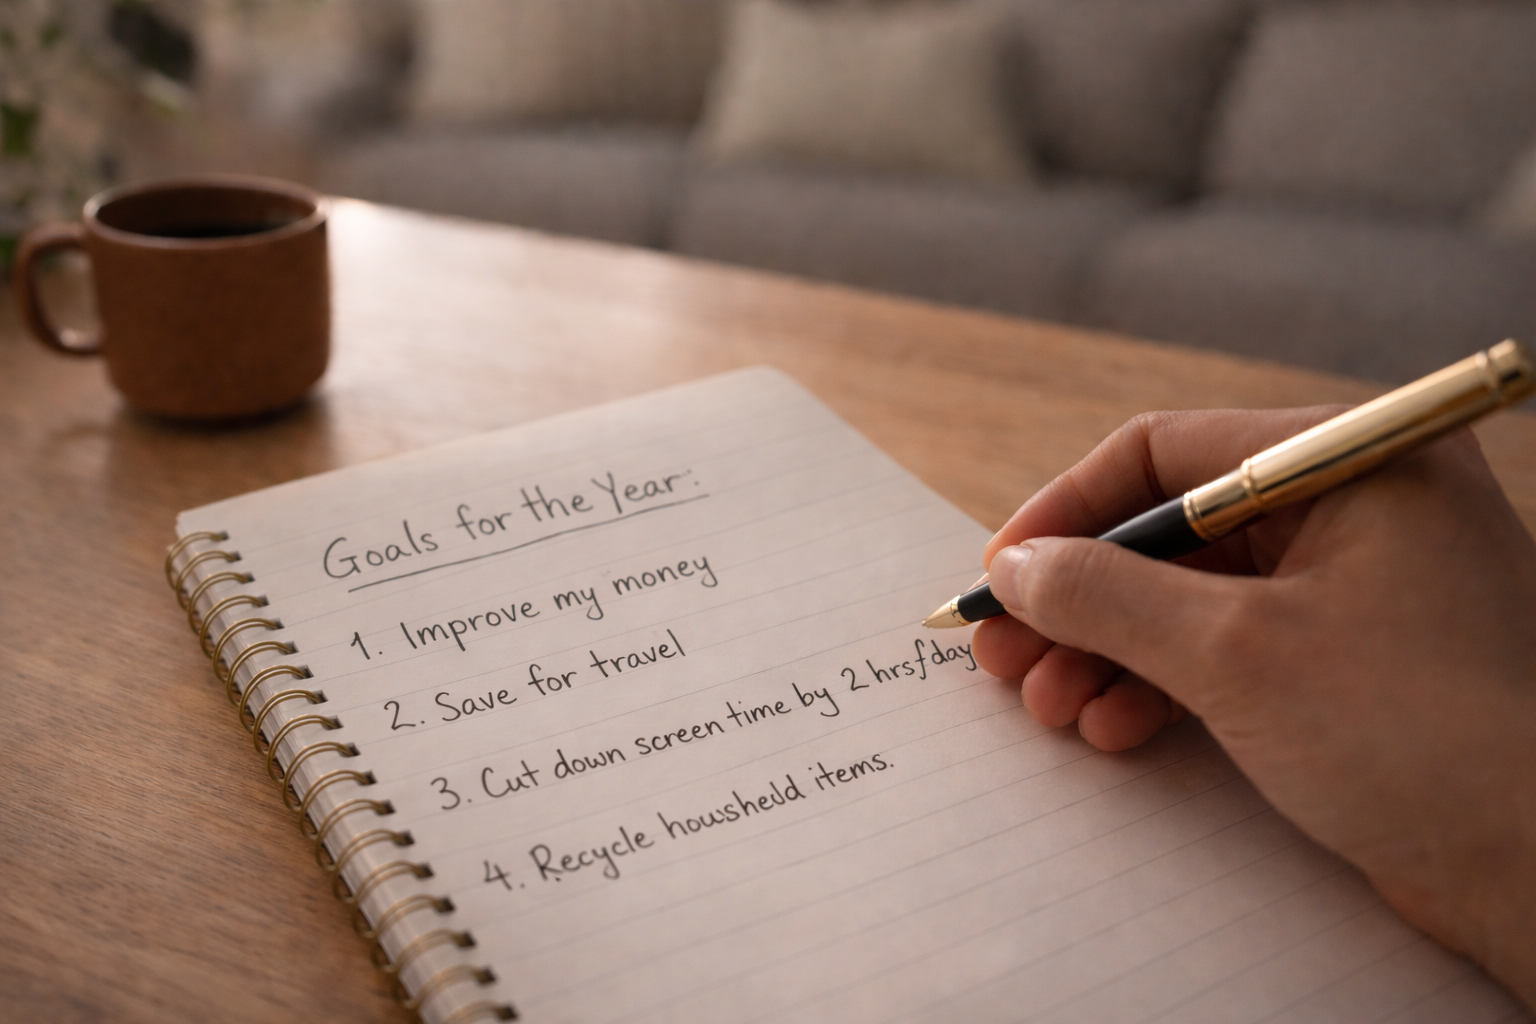 Goals for the Year:
1. Improve my money
2. Save for travel
3. Cut down screen time by 2 hrs/day
4. Recycle houshevld items.